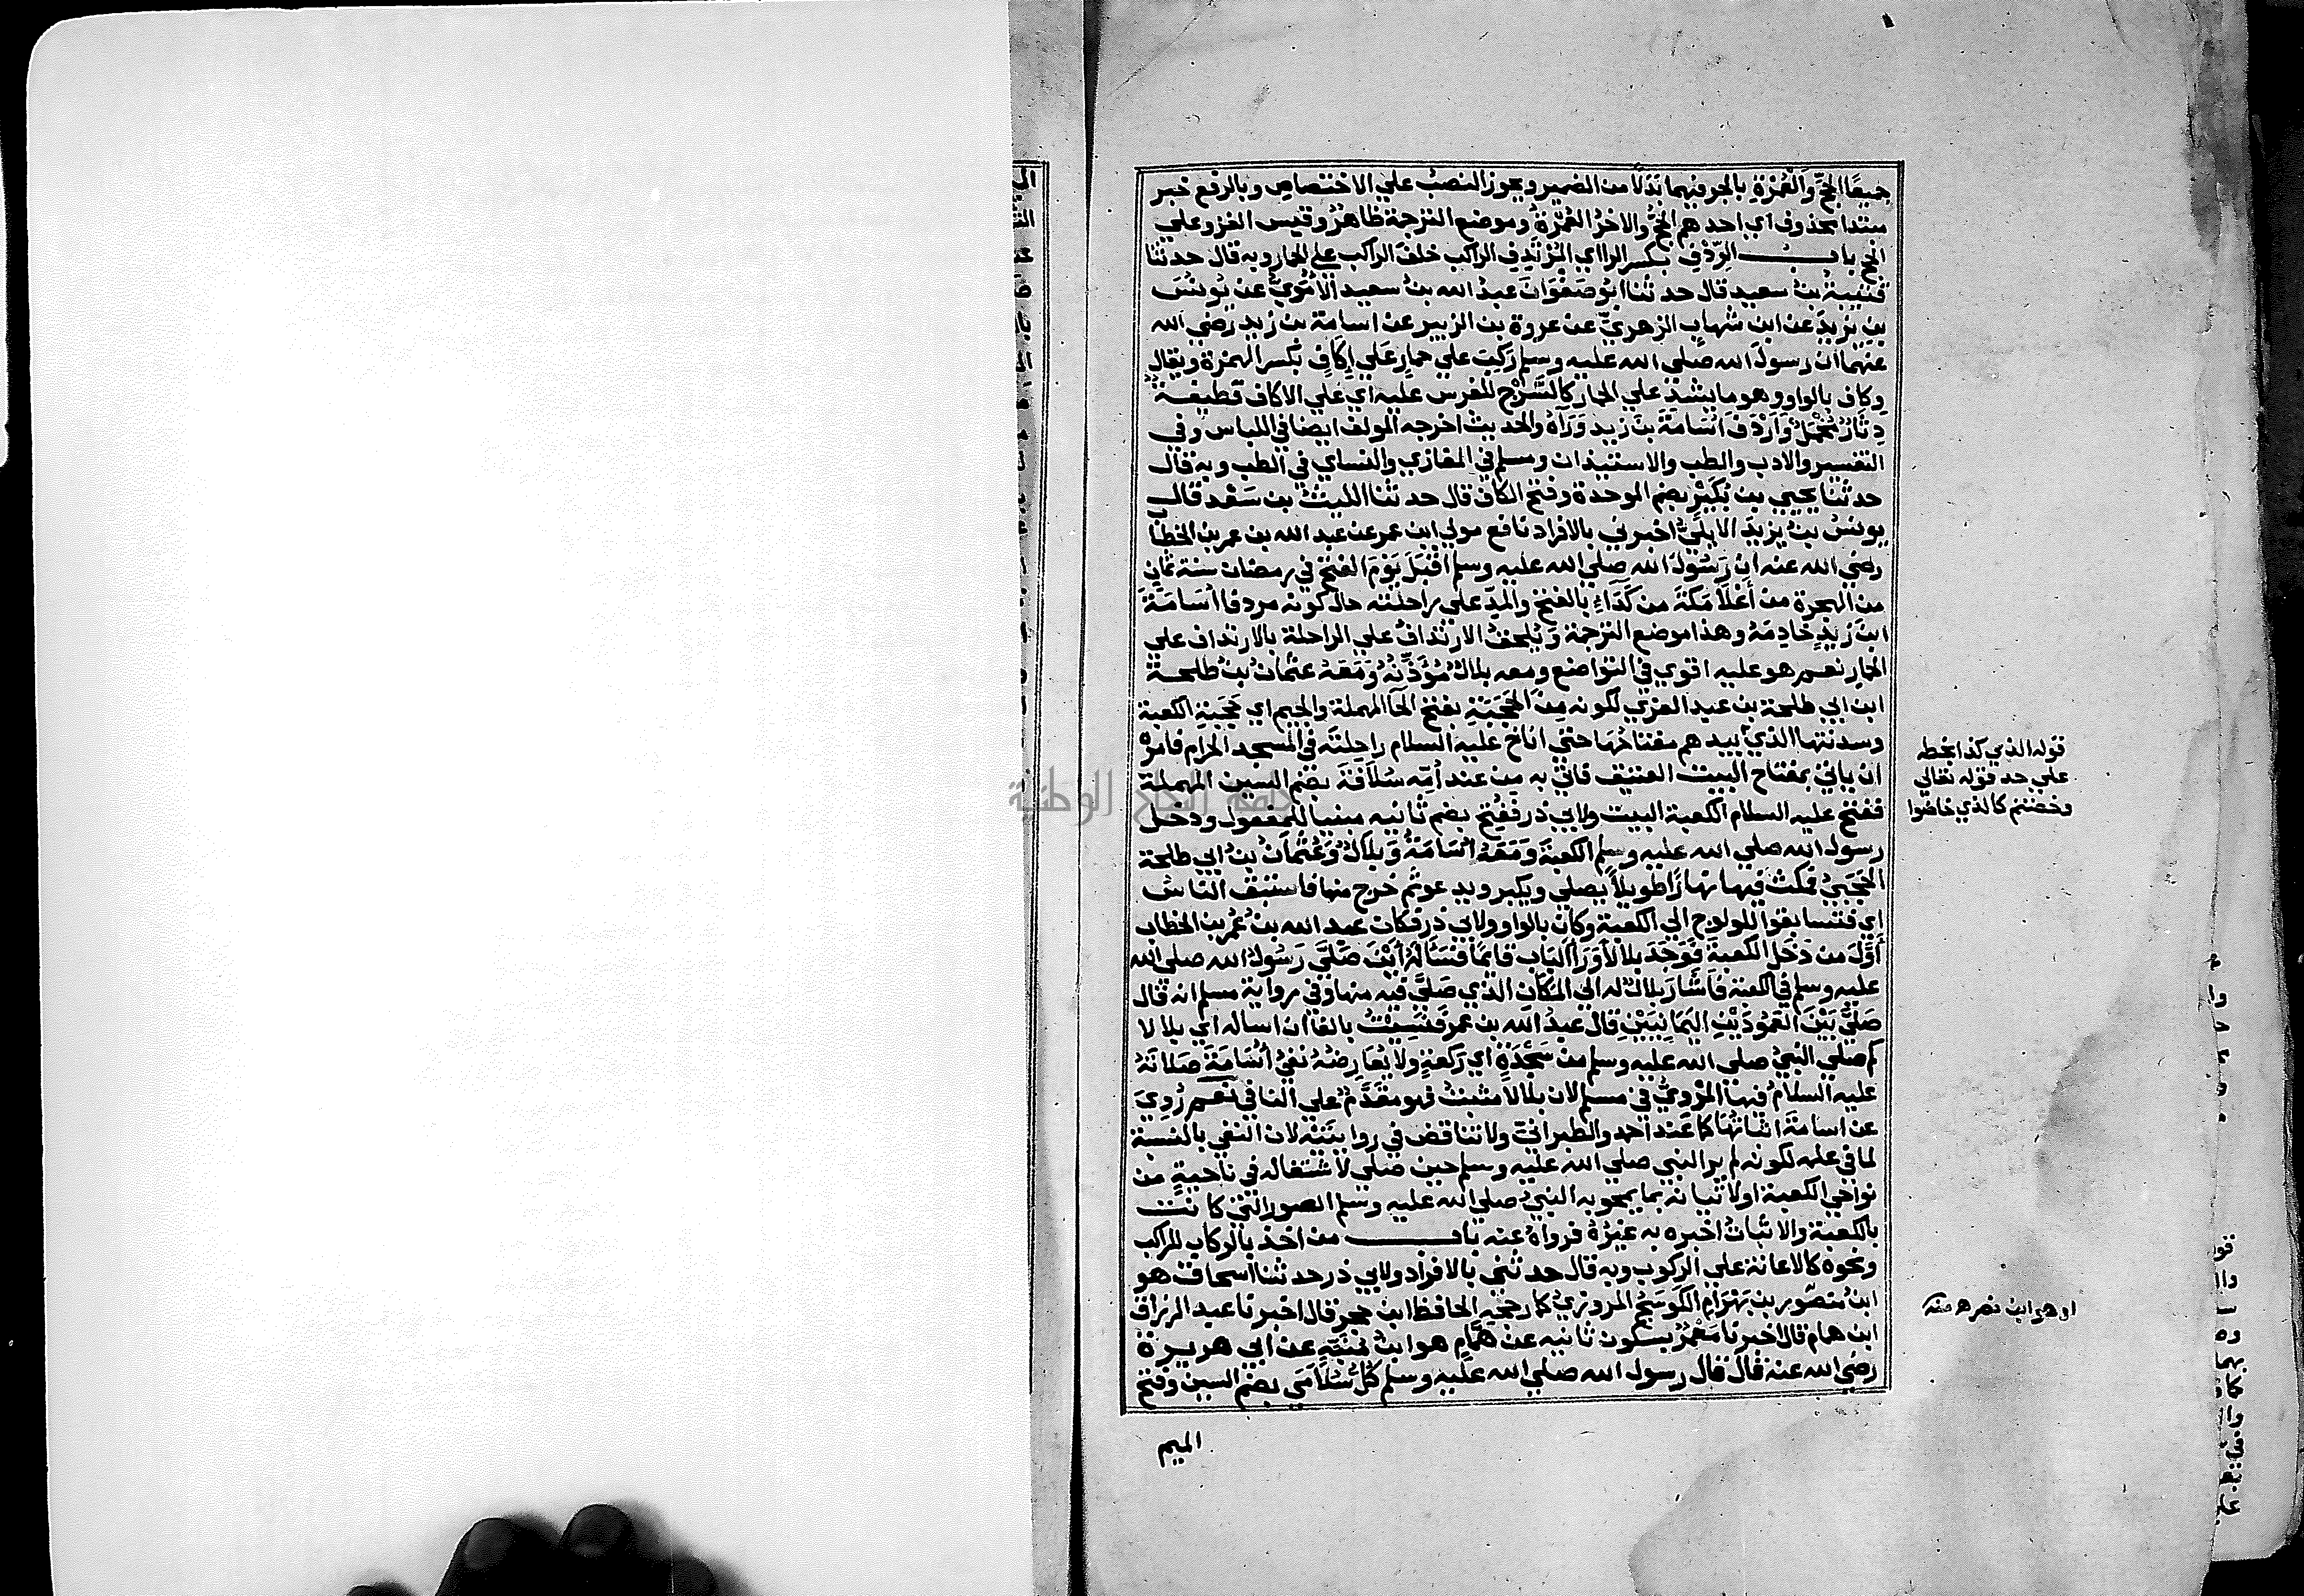 جميعًا الحجِّ والعُمْرَةِ بالجر فيهما بَدَلا من الضمير ويجوز النصبُ علي الاختصاص وبالرفع خبر
مبتدا محذوف اي احدهم الحجُّ والاخرُ العُمْرَةُ وموضع الترجمة ظاهرٌ وقيس الغزو علي
الحج باب الرِّدْفِ بكسر الرا اي المُرْتَدِفِ الراكب خلف الراكب علي الحمار وبه قال حدثنا
قتيبةُ بنُ سعيد قال حدثنا ابو صَفْوَانَ عبدُ الله بنُ سعيد الأُمَويُّ عن يُونُسَ
بنِ يزيدَ عن ابن شهابٍ الزهريِّ عن عروة بن الزبير عن اسامة بن زيد رضي الله
عنهما ان رسولَ الله صلي الله عليه وسلم رَكِبَ علي حمارٍ عَلي إِكَافٍ بكسر الهمزة ويقال
وِكاف بالواو وهو ما يشد علي الحمار كالسَّرْجِ للفرس عليه اي علي الاكاف قَطيفة
دِثَارٌ مُخْمَلٌ وَأَرْدَفَ أسَامَةَ بن زيد وَرَآهُ والحديث اخرجه المولف ايضا في اللباس وفي
التفسير والادب والطب والاستيذان ومسلم في المغازي والنساي في الطب وبه قال
حدثنا يحيي بن بُكَيْرٍ بضم الموحدة وفتح الكاف قال حدثنا الليثُ بن سَعْد قال
يونسُ بنُ يزيدَ الايليُّ اخبرني بالافراد نافع مولي ابن عمر عن عبد الله بن عمر بن الخطاب
رضي الله عنه ان رَسُولَ الله صلي الله عليه وسلم اقْبَلَ يَوْمَ الفتح في رمضان سنة ثمانٍ
من الهجرة من أَعْلا مَكَّةَ من كَدَاءٍ بالفتح والمدِّ علي راحلته حال كونه مردفا أسَامَةَ
ابنَ زيدٍ خادِمَهُ وهذا موضع الترجمة وَيُلحقُ الارتدافُ علي الراحلة بالارتداف علي
الحمار نعم هو عليه اقوي في التواضع ومعه بلالٌ مُؤَذِّنُهُ وَمَعَهُ عثمانُ بنُ طلحة
ابن ابي طلحة بن عبد العزي لكونه مِن الحَجَبَةِ بفتح الحآ المهملة والجيم اي حَجَبَةِ الكعبة
وسدنتها الذي بيدهم مفتاحُهَا حتي اناخ عليه السلام راحِلتَه في المسجد الحرام فامره
ان ياتيَ بمفتاح البيت العتيق فاتي به مِن عند أُمِّه سُلاَفَةَ بضم السين المهملة
ففتح عليه السلام الكعبة البيت ولابي ذر فَفُتِحَ بضم ثانيه مبنيا للمفعول ودخل
رسولُ الله صلي الله عليه وسلم الكعبةَ وَمَعَهُ اسَامَةُ وَبلالٌ وَعُثمانُ بنُ ابي طلحة
الحَجَبيُّ فمكث فيها نهارًا طويلاً يصلي ويكبر ويدعو ثم خرج منها فاستبق الناسُ
اي فتسابقوا للولوج الي الكعبة وكان بالواو ولابي ذر فكان عبد الله بنُ عُمر بن الخطاب
أوَّلَ من دَخَل الكعبةَ فَوَجَدَ بلالاً وَرَآ البَاب قايمًا فَسَأَلهُ أيْنَ صَلَّيَ رَسُولُ الله صلي الله
عليه وسلم في الكعبة فأَشارَ بلالٌ له الي المَكَانِ الذي صَلَّيَ فيه منها وفي رواية مسلم انه قال
صَلَّيَ بَيْنَ العَمُودَيْنِ اليَمَانِيَيْنِ قال عبدُ الله بن عمرَ فَنَسِيْتُ بالفا ان اساله اي بلالا
كم صلي النبيُّ صلي الله عليه وسلم من سَجْدَةٍ اي رَكعةٍ ولا يُعَارِضُهُ نفيُ أسَامَةَ صَلاتَهُ
عليه السلامُ فيها المَرْويُّ في مسلم لان بلالا مثبتٌ فهو مقَدَّمٌ علي النافي نعم رُوِيَ
عن اسامةَ اثباتُهَا كما عند احمد والطبرانيِّ ولا تناقض في روايتَيْه لان النفي بالنسبة
لما في علمه لكونه لم ير النبي صلي الله عليه وسلم حين صلي لاشتغاله في ناحيةٍ من
نواحي الكعبة او لاتيانه بما يمحو به النبيُ صلي الله عليه وسلم الصور التي كانت
بالكعبة والاثباتُ اخبره به غيرُهُ فرواهُ عنه باب من اخذ بالركاب للراكب
ونحوه كالاعانة علي الركوب وبه قال حدثني بالافراد ولابي ذر حدثنا اسحاق هو
ابنُ منصُور بن بَهْرَامٍ الكَوسَجُ المروزيُّ كما رجحه الحافظ ابن حجر قال اخبرنا عبد الرزاق
ابن همام قال اخبرنا مَعْمَرٌ بسكون ثانيه عن هَمَّامٍ هو ابنُ مُنَبِّهٍ عن ابي هريرة
رضي الله عنه قال قال رسول الله صلي الله عليه وسلم كُلُّ سُلاَمَي بضم السين وفتح
الميم
قوله الذي كذا بخطه
علي حد قوله تعالي
وخضتم كالذي خاضوا
او هو ابن نصر هـ منه
جامعة النجاح الوطنية